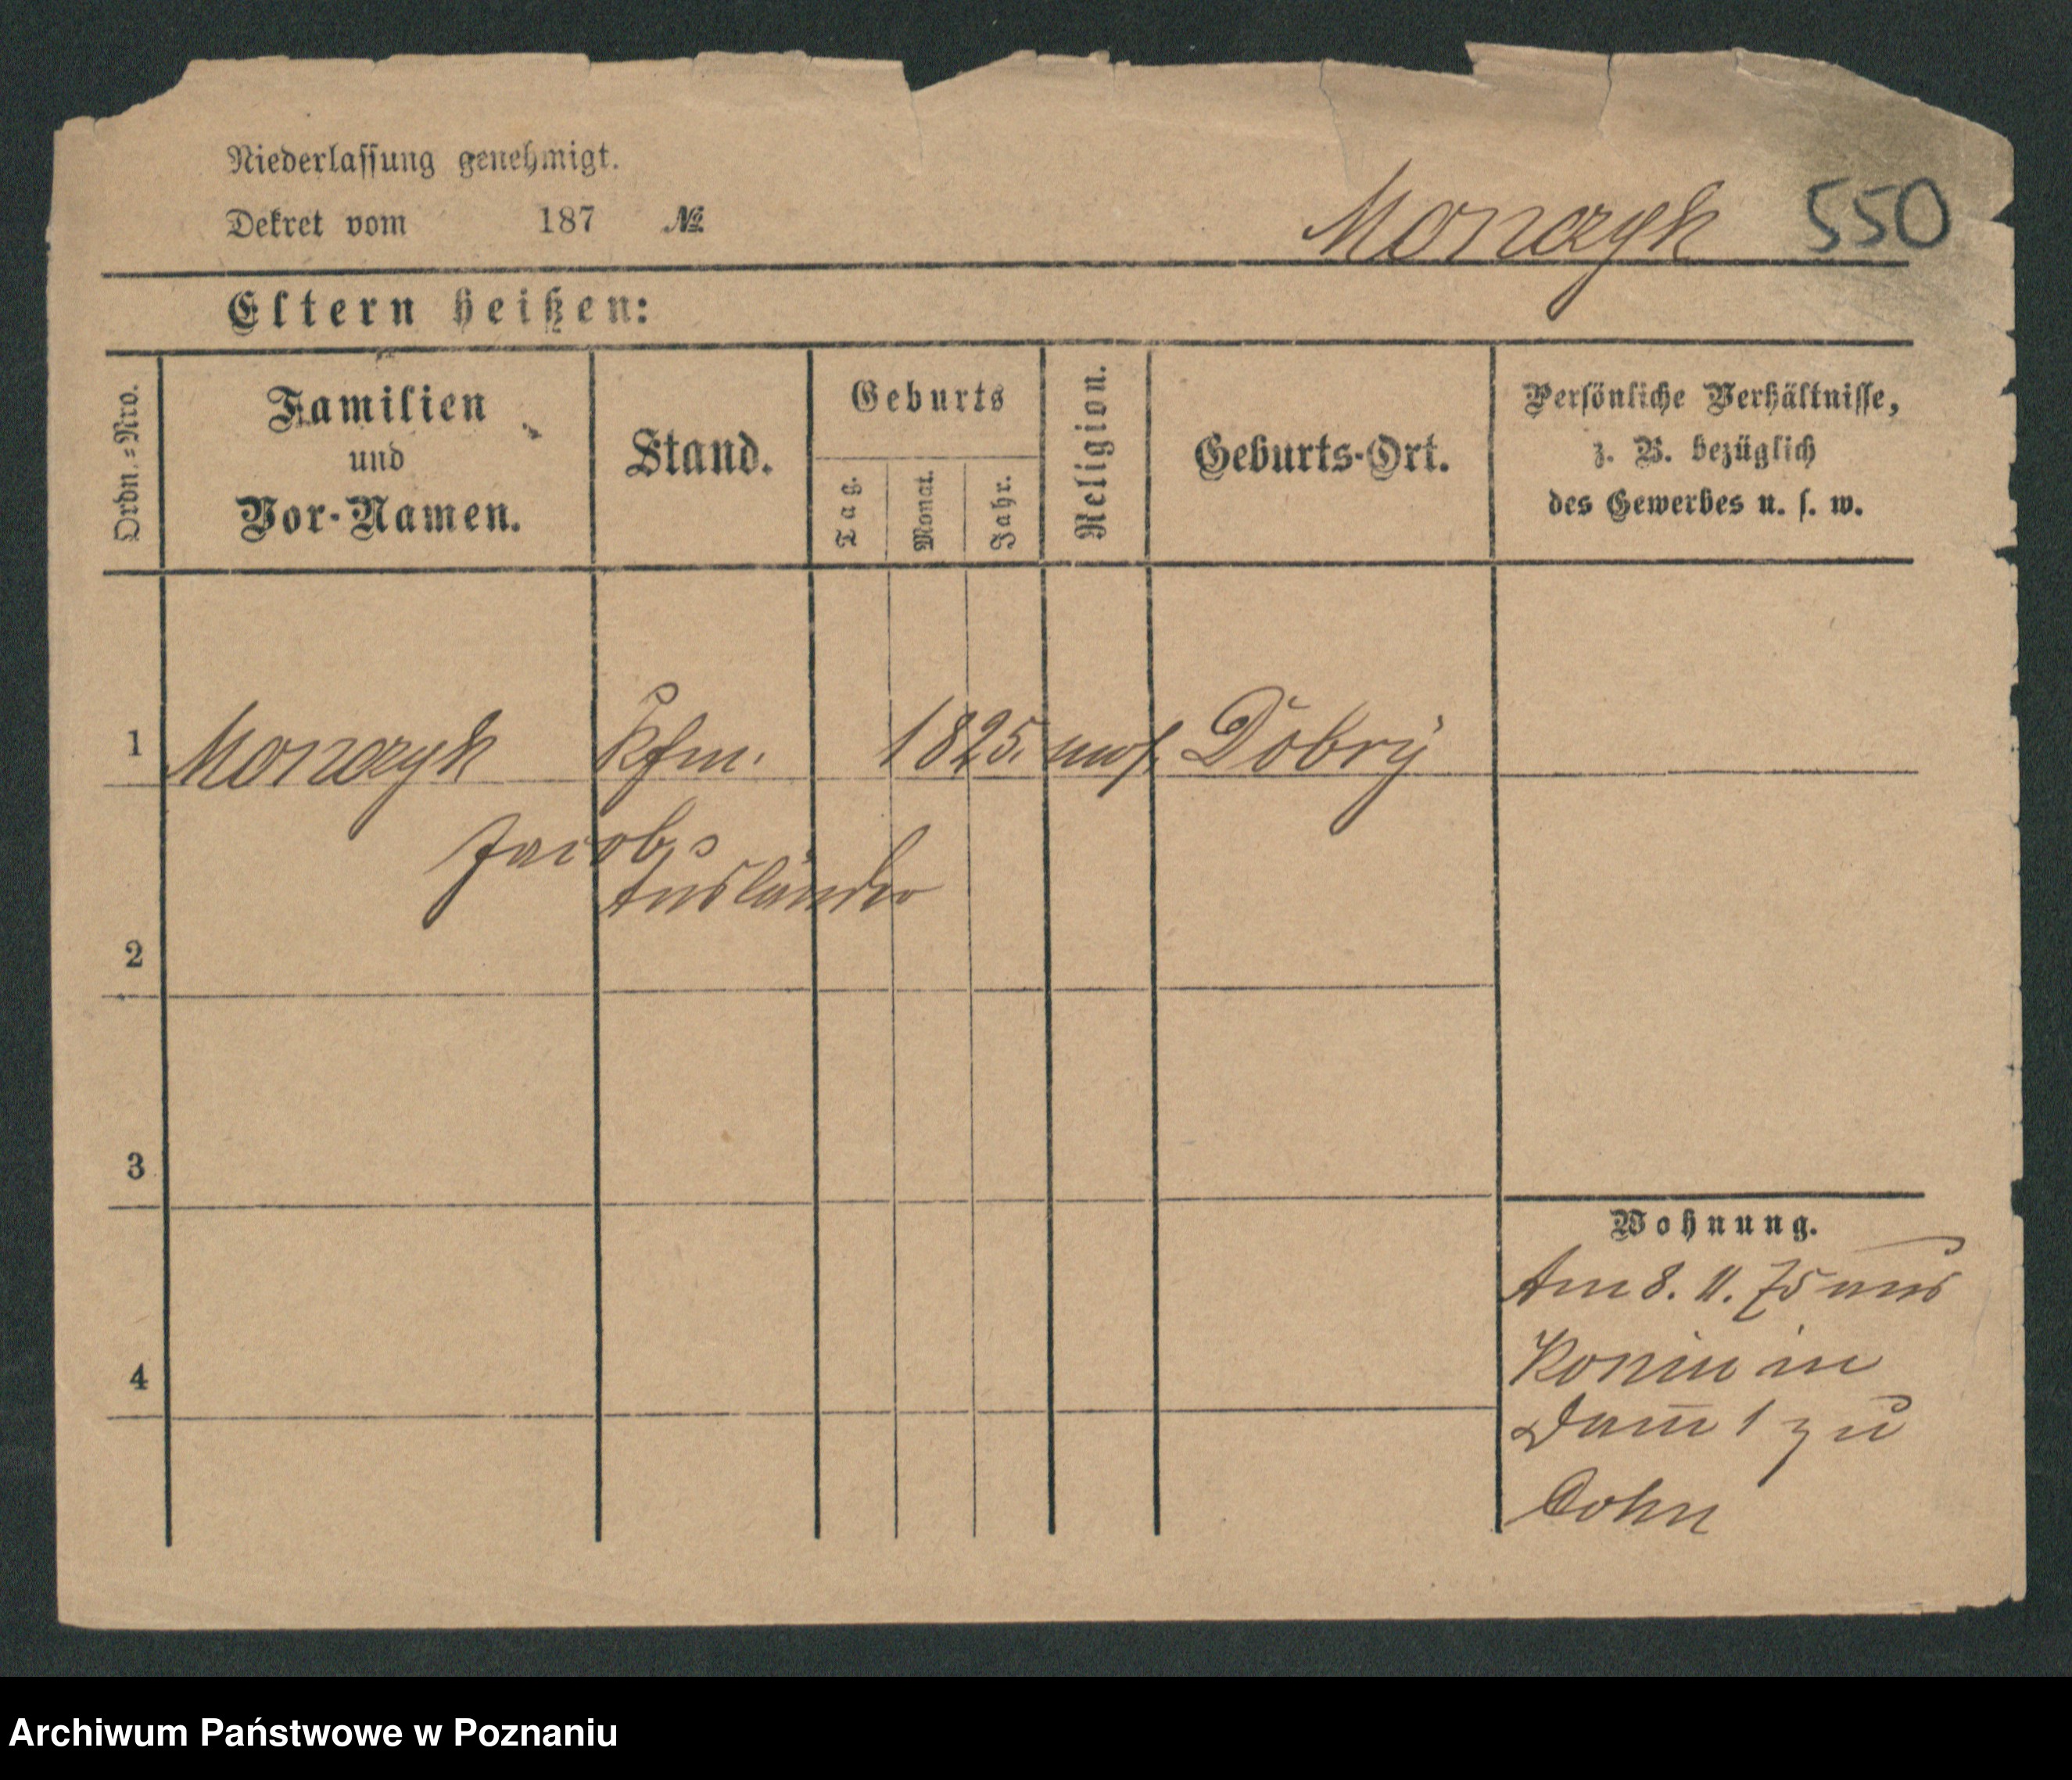 Niederlassung genehmigt.
Dekret vom 187 №
Monczyk 550
Eltern heißen:
Ordn.-Nro.
Familien
und
Vor-Namen.
Stand.
Geburts
Tag.
Monat.
Jahr.
Religion.
Geburts-Ort.
Persönliche Verhältnisse,
z. B. bezüglich
des Gewerbes u. s. w.
1 Monczyk Kfm. 1825. mos. Dobry
Jacob
Ausländer
2
3
4
Wohnung.
Am 8. 11. 75 aus
Konin in
Dam̅ 1 zu
Cohn
Archiwum Państwowe w Poznaniu